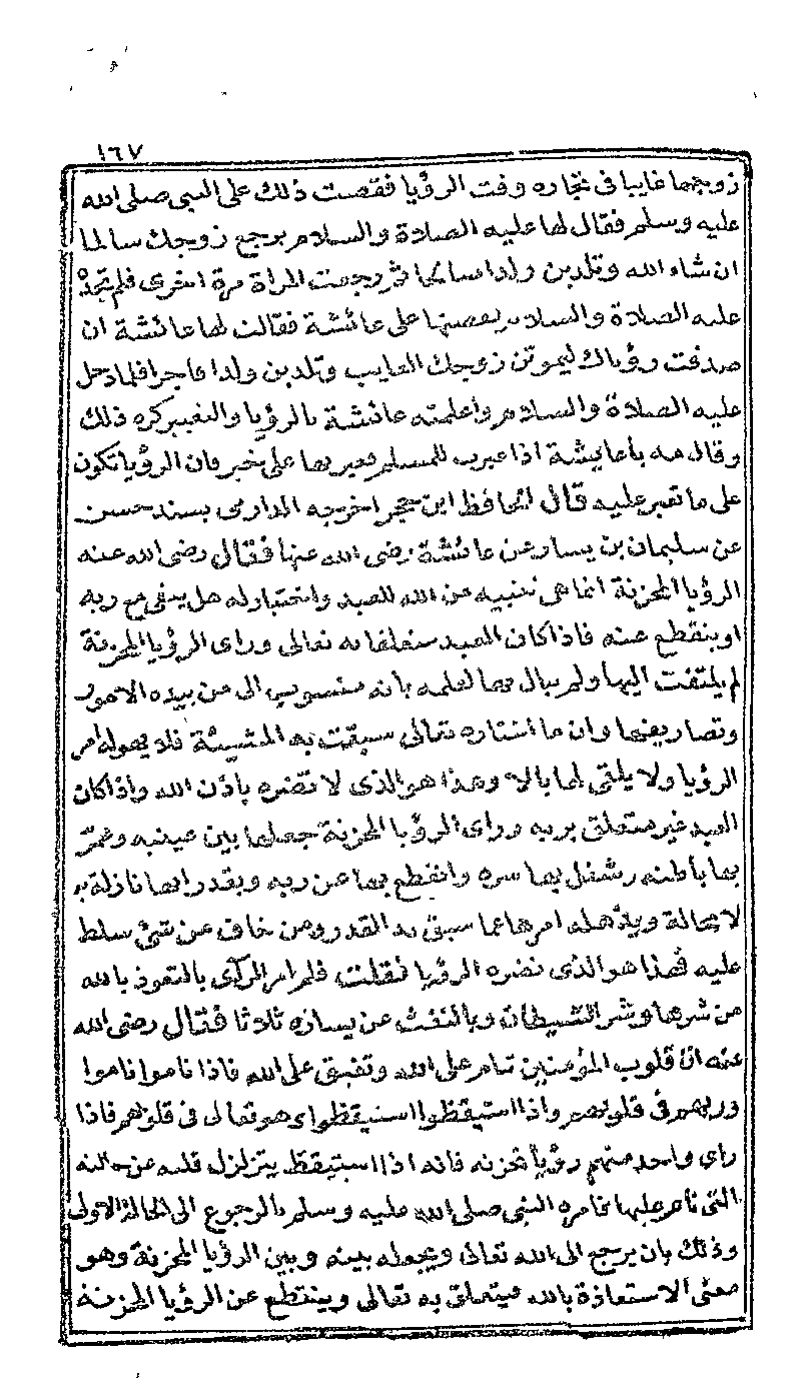 ١٦٧
زوجها غايبا فى تجاره وقت الرؤيا فقصت ذلك على النبى صلى الله
عليه وسلم فقال لها عليه الصلاة والسلام يرجع زوجك سالما
ان شاء الله وتلدين ولدا صالحا ثم رجعت المراة مرة اخرى فلم تجد
عليه الصلاة والسلام بقصتها على عائشة فقالت لها عائشة ان
صدقت رؤياك ليموتن زوجك الغايب وتلدين ولدا فاجرا فلما دخل
عليه الصلاة والسلام واعلمته عائشة بالرؤيا والتعبير كره ذلك
وقال مه يا عايشة اذا عبرت للمسلم فعبريها على خير فان الرؤيا تكون
على ما تعبر عليه قال الحافظ ابن حجر اخرجه الدارمى بسند حسن
عن سليمان بن يسار عن عائشة رضى الله عنها فقال رضى الله عنه
الرؤيا المحزنة انما هى تنبيه من الله للعبد واختبار له هل يبقى مع ربه
او ينقطع عنه فاذا كان العبد متعلقا به تعالى وراى الرؤيا المحزنة
لم يلتفت اليها ولم يبال بها لعلمه بانه منسوب الى من بيده الامور
وتصاريفها وان ما اختاره تعالى سبقت به المشيئة فلا يهوله امر
الرؤيا ولا يلقى لها بالا وهذا هو الذى لا تضره باذن الله واذا كان
العبد غير متعلق بربه وراى الرؤيا المحزنة جعلها بين عينيه وعمّر
بها باطنه وشغل بها سره وانقطع بها عن ربه ويقدر انها نازلة به
لا محالة ويذهله امرها عما سبق به القدر ومن خاف من شئ سلط
عليه فهذا هو الذى تضره الرؤيا فقلت فلم امر الرآى بالتعوذ بالله
من شرها وشر الشيطان وبالنفث عن يساره ثلاثا فقال رضى الله
عنه ان قلوب المؤمنين تنام على الله وتفيق على الله فاذا ناموا ناموا
وربهم فى قلوبهم واذا استيقظوا استيقظوا وهو تعالى فى قلوبهم فاذا
راى واحد منهم رؤيا تحزنه فانه اذا استيقظ يتزلزل قلبه عن حالته
التى نام عليها فامره النبى صلى الله عليه وسلم بالرجوع الى الحالة الاولى
وذلك بان يرجع الى الله تعالى ويجعله بينه وبين الرؤيا المحزنة وهو
معنى الاستعاذة بالله فيتعلق به تعالى وينقطع عن الرؤيا المحزنة